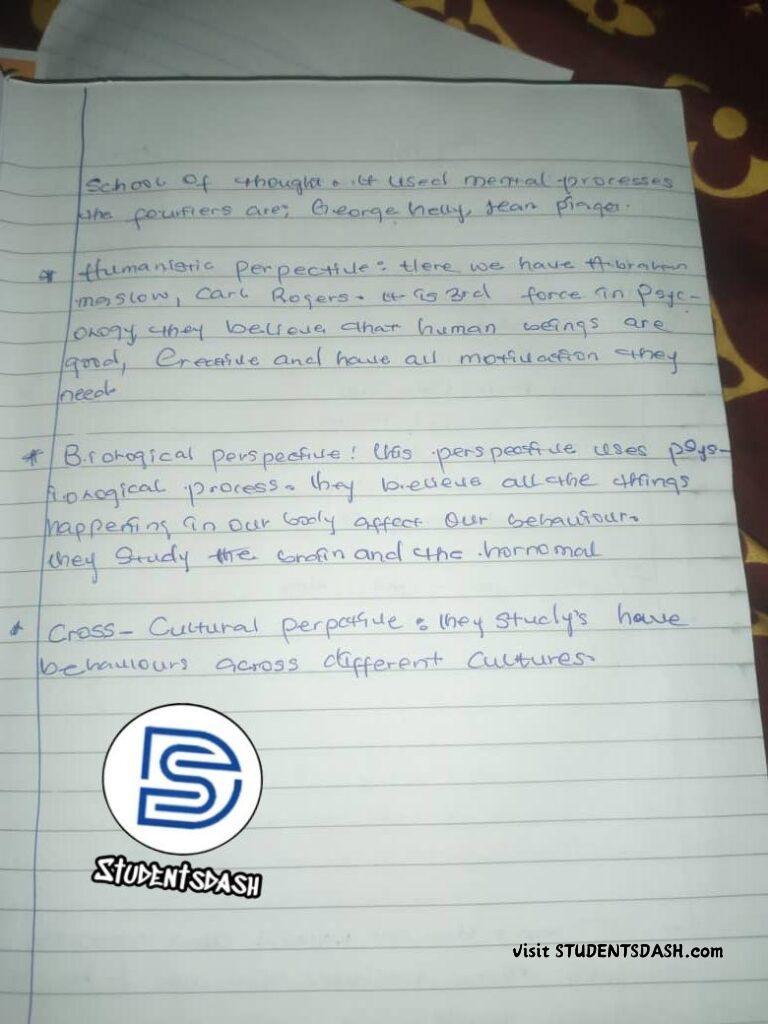 School of thought. it used mental processes
the founfiers are; George helly, Jean piager.
* Humanistic perpective: Here we have Abraham
maslow, Carl Rogers. it is 3rd force in psyc-
ology, they believe that human beings are
good, Creative and have all motivaction they
need
* Biological perspective: this perspective uses psys-
iological process. they believe all the things
happening in our body affect our behaviour.
they study the brain and the hornomal
* Cross-Cultural perpective: they study's have
behaviours across different cultures.
DS
STUDENTSDASH
visit STUDENTSDASH.com